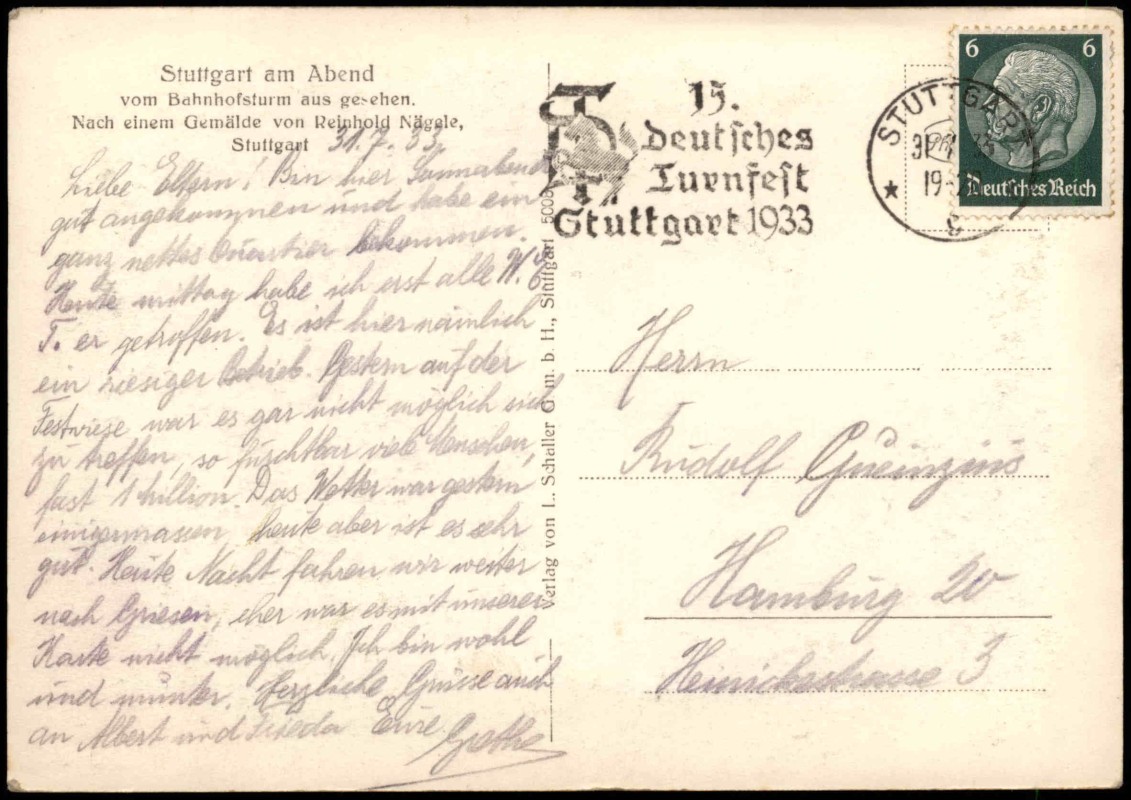 Stuttgart am Abend
vom Bahnhofsturm aus gesehen.
Nach einem Gemälde von Reinhold Nägele,
Stuttgart
31.7.33.
Liebe Eltern! Bin hier Sonnabend
gut angekommen und habe ein
ganz nettes Quartier bekommen.
Heute mittag habe ich erst alle
T. er getroffen. Es ist hier nämlich
ein riesiger Betrieb. Gestern auf der
Festwiese war es gar nicht möglich sich
zu treffen, so furchtbar viele Menschen,
fast 1 Million. Das Wetter war gestern
einigermassen, heute aber ist es sehr
gut. Heute Nacht fahren wir weiter
nach Griesen, eher war es mit unserer
Karte nicht möglich. Ich bin wohl
und munter. Herzliche Grüsse auch
an Albert und Frieda Eure
Verlag von L. Schaller G. m. b. H., Stuttgart 5008
15.
deutsches
Turnfest
Stuttgart 1933
STUTTGART
31.7.33
19
6 6
Deutsches Reich
Herrn
Rudolf Gueinzius
Hamburg 20
Heinickestrasse 3